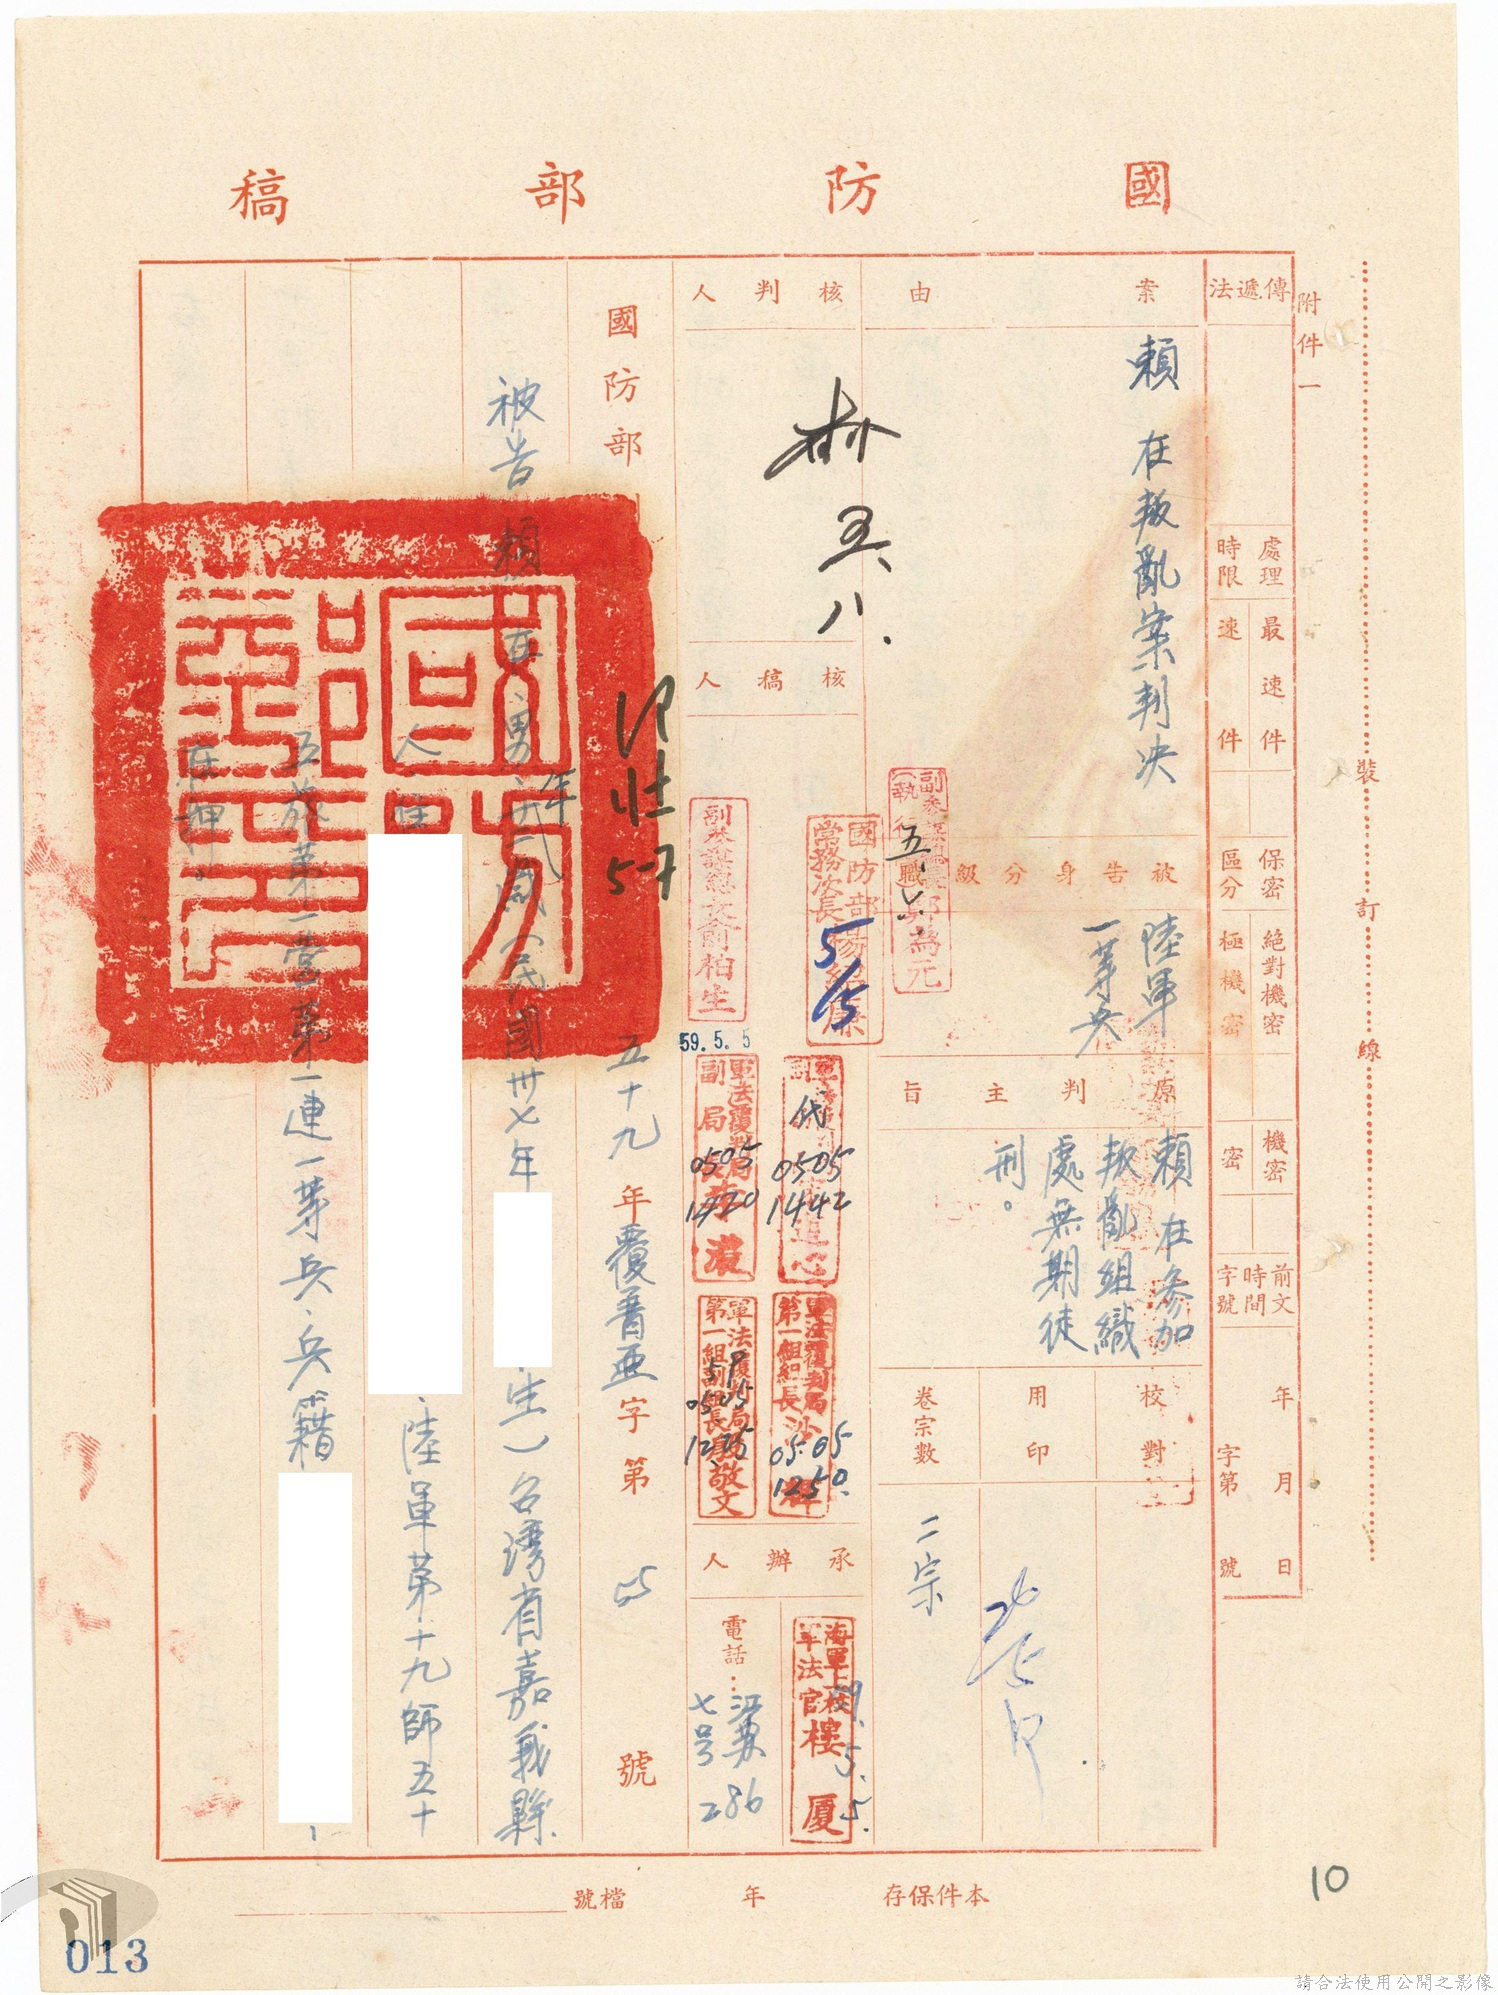 國防部稿
附件一
裝訂線
傳遞法
處理時限
最速件
速件
保密區分
絕對機密
極機密
機密
密
前文時間字號
年月日
字第號
案由
賴 在叛亂案判决
被告身分級職
陸軍
一等兵
原判主旨
賴 在參加
叛亂組織
處無期徒
刑。
校對
用印
卷宗數
二宗
核判人
五、八.
核稿人
副參謀總長
(執行官)
五、六、
國防部
常務次長
5/5
副參謀總長
柏生
59.5.5
代
0505
1442
軍法覆判局
副局長
0505
1420
軍法覆判局
第一組組長
05.05
1250.
軍法覆判局
第一組副組長
敬文
59
0505
1235
承辦人
海軍上校
軍法官樓厦
59.5.5.
電話:
江蘇
七号
286
國防部
5-7
五十九年覆普亞字第 號
被告賴 在、男、年廿二歲(民國卅七年
生)台灣省嘉義縣
人、住
、陸軍第十九師五十
五旅第一營第一連一等兵、兵籍
、
在押。
國防部印
本件保存 年 檔號
10
013
請合法使用公開之影像